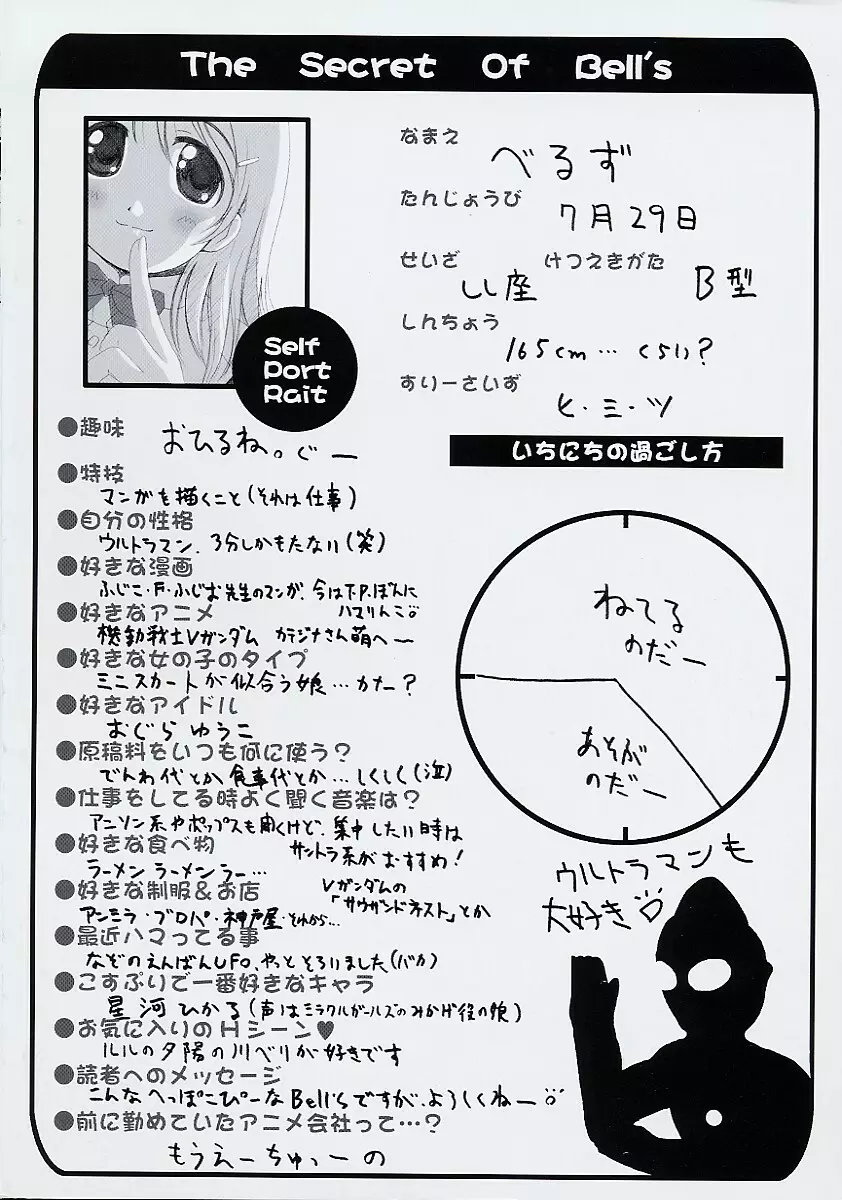 The Secret Of Bell's
なまえ
べるず
たんじょうび
7月29日
せいざ
しし座
けつえきがた
B型
しんちょう
165cm…くらい?
すりーさいず
ヒ・ミ・ツ
Self
Port
Rait
●趣味
おひるね。ぐー
●特技
マンガを描くこと(それは仕事)
●自分の性格
ウルトラマン、3分しかもたない(笑)
●好きな漫画
ふじこ・F・ふじお先生のマンガ、今はT.P.ぼんに
ハマりんこ
●好きなアニメ
機動戦士Vガンダム カテジナさん萌へー
●好きな女の子のタイプ
ミニスカートが似合う娘…かなー?
●好きなアイドル
おぐら ゆうこ
●原稿料をいつも何に使う?
でんわ代とか食事代とか…しくしく(泣)
●仕事をしてる時よく聞く音楽は?
アニソン系やポップスも聞くけど、集中したい時は
サントラ系がおすすめ!
Vガンダムの
「サウザンドネスト」とか
●好きな食べ物
ラーメン ラーメン ラー…
●好きな制服&お店
アンミラ・ブロパ・神戸屋・それから…
●最近ハマってる事
なぞのえんばんUFO、やっとそろいました(バカ)
●こすぷりで一番好きなキャラ
星河ひかる(声はミラクルガールズのみかげ役の娘)
●お気に入りのHシーン♥
ルルの夕陽の川べりが好きです
●読者へのメッセージ
こんなへっぽこぴーなBell'sですが、よろしくねー
●前に勤めていたアニメ会社って…?
もうえーちゅっーの
いちにちの過ごし方
ねてる
のだー
あそぶ
のだー
ウルトラマンも
大好き♡